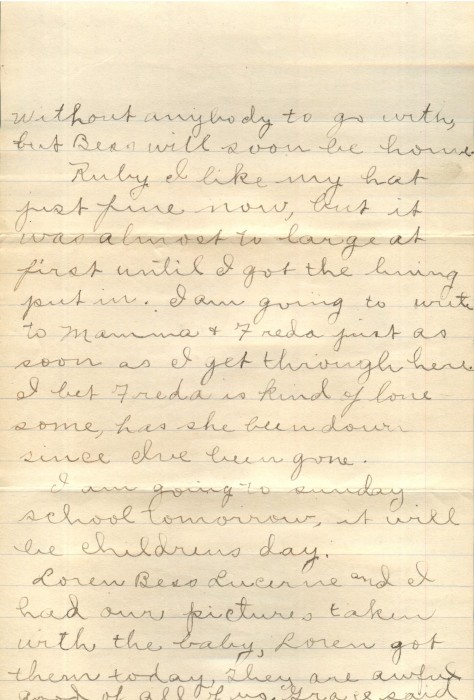 without anybody to go with,
but Bess will soon be home.
Ruby I like my hat
just fine now, but it
was almost to large at
first until I got the lining
put in. I am going to write
to Mamma & Freda just as
soon as I get through here
I bet Freda is kind of lone
some, has she been down
since I've been gone.
I am going to sunday
school tomorrow, it will
be childrens day.
Loren Bess Lucerne and I
had our pictures taken
with the baby, Loren got
them today, They are awful
good of all of us,